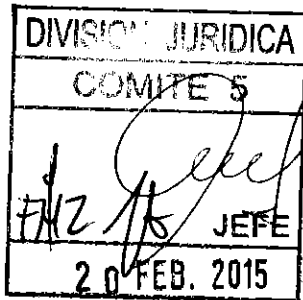 DIVISION JURIDICA
COMITE 5
JEFE
20 FEB. 2015